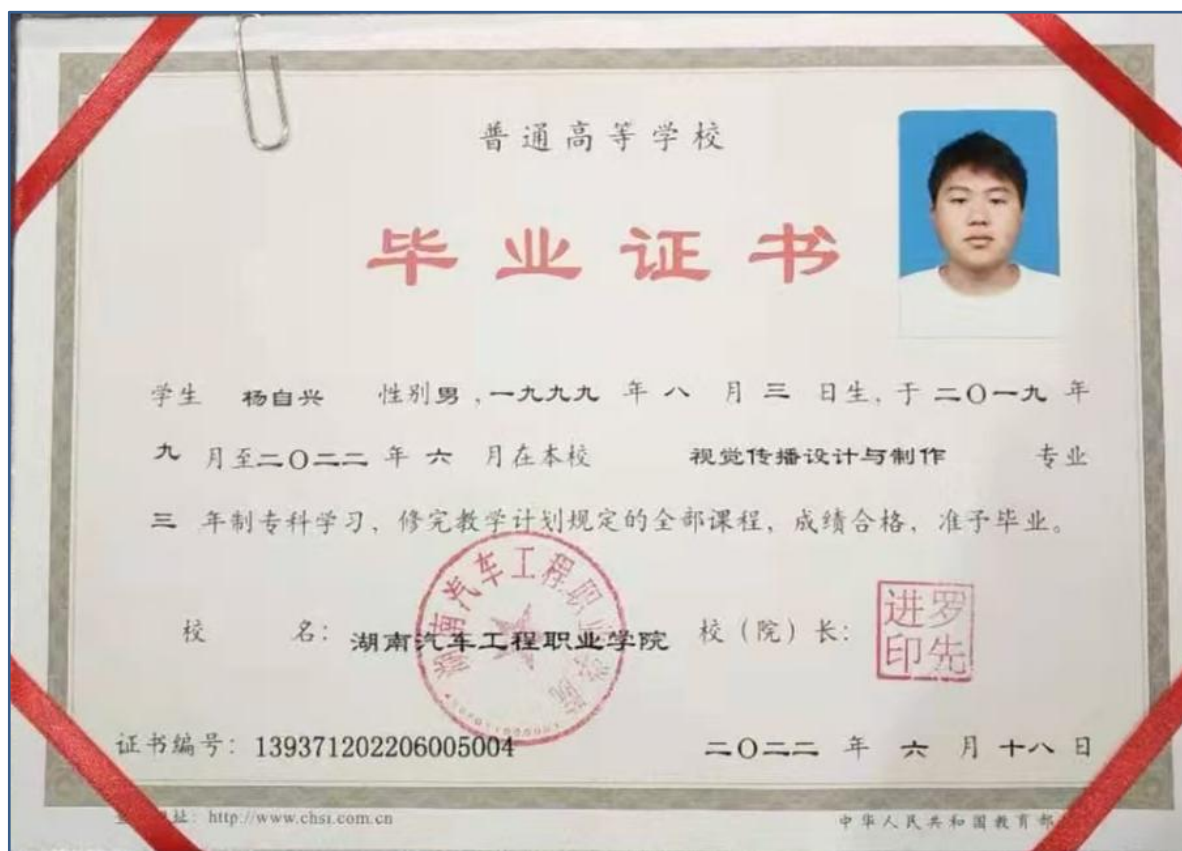 普通高等学校
毕业证书
学生 杨自兴 性别男,一九九九 年 八 月 三 日生,于二〇一九 年
九 月至二〇二二 年 六 月在本校 视觉传播设计与制作 专业
三 年制专科学习,修完教学计划规定的全部课程,成绩合格,准予毕业。
校 名: 湖南汽车工程职业学院 校(院)长:
湖南汽车工程职业学院
罗先进印
证书编号: 139371202206005004 二〇二二 年 六 月 十八 日
址: http://www.chsi.com.cn 中华人民共和国教育部